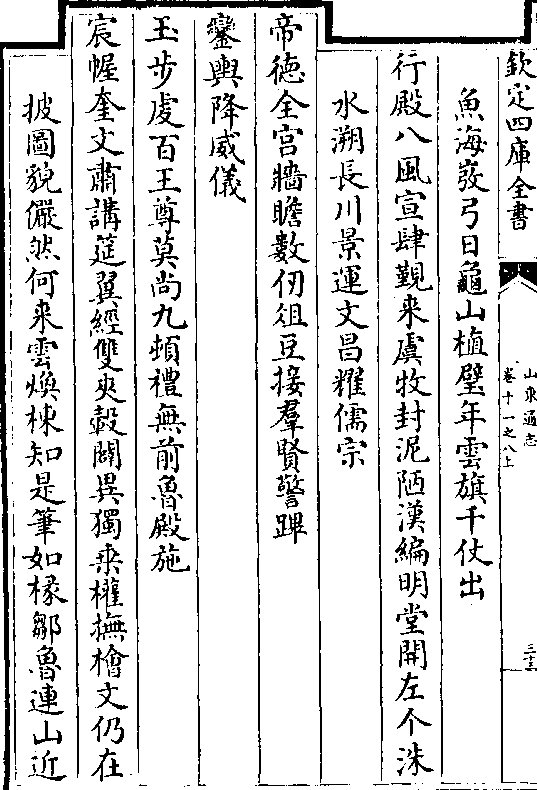 欽定四庫全書
山東通志
卷十一之八上
三十三
魚海發弓日龜山植璧年雲旗千仗出
行殿八風宣肆覲来虞牧封泥陋漢編明堂開左个洙
水溯長川景運文昌耀儒宗
帝徳全宫牆瞻數仞俎豆接羣賢警蹕
鑾輿降威儀
玉步虔百王尊莫尚九頓禮無前魯殿施
宸幄奎文肅講筵翼經雙夾轂闢異獨乗權撫檜文仍在
披圖貌儼然何来雲煥棟知是筆如椽鄒魯連山近